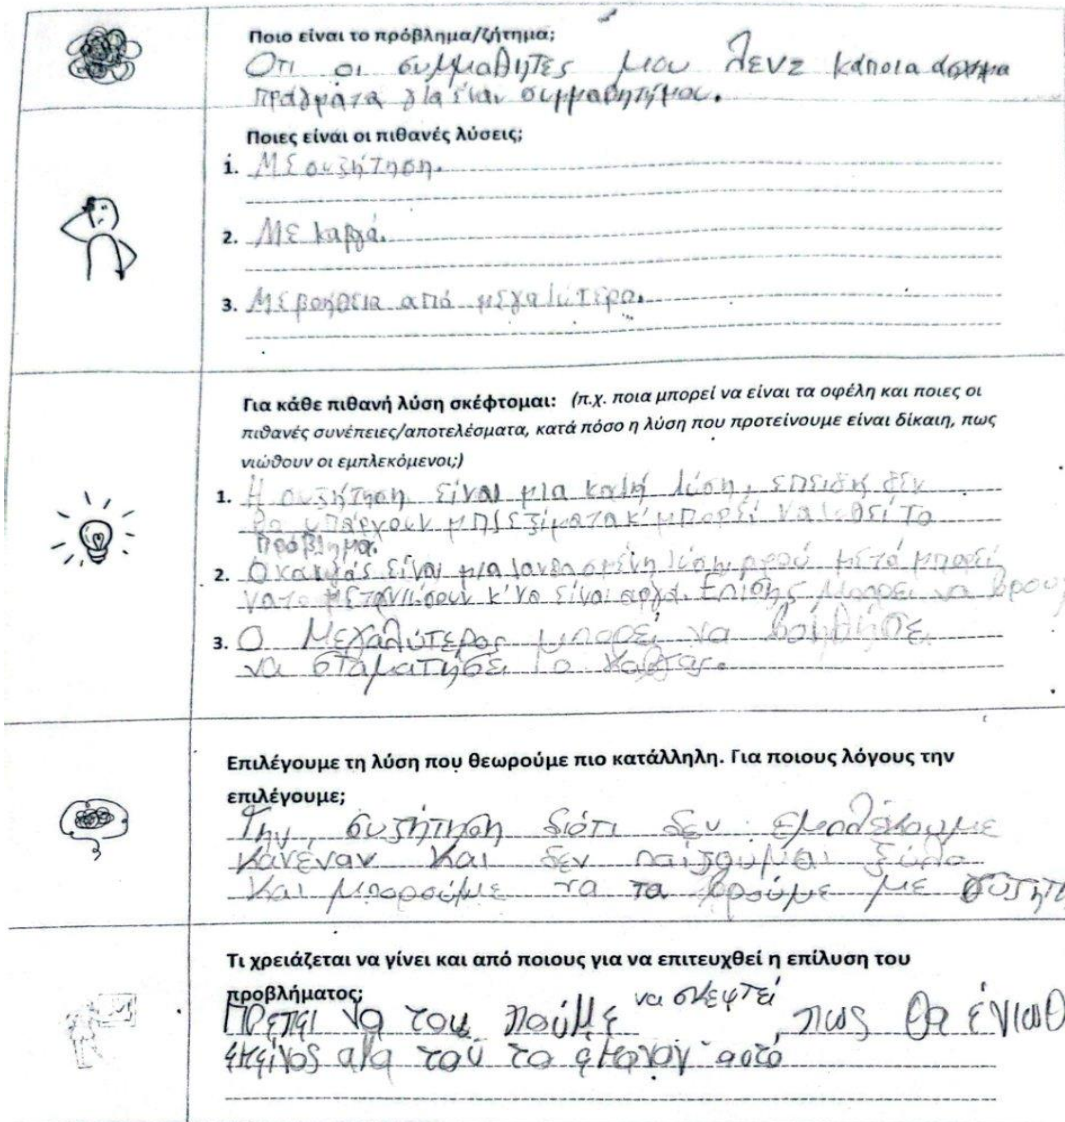 Ποιο είναι το πρόβλημα/ζήτημα;
Οτι οι συμμαθητές μου λενε κάποια άσχημα
πράγματα για έναν συμμαθητήμου.
Ποιες είναι οι πιθανές λύσεις;
1. Με συζήτηση.
2. Με καβγά.
3. Με βοήθεια από μεγαλύτερο.
Για κάθε πιθανή λύση σκέφτομαι: (π.χ. ποια μπορεί να είναι τα οφέλη και ποιες οι
πιθανές συνέπειες/αποτελέσματα, κατά πόσο η λύση που προτείνουμε είναι δίκαιη, πως
νιώθουν οι εμπλεκόμενοι;)
1. Η συζήτηση είναι μια καλή λύση, επειδή δεν
θα υπάρχουν μπλεξίματα κ' μπορεί να λυθεί το
πρόβλημα.
2. Ο καυγάς είναι μια λανθασμένη λύση αφού μετά μπορεί
να το μετανιώσουν κ' να είναι αργά. Επίσης μπορεί να βρουν
3. Ο Μεγαλύτερος μπορεί να βοηθήσε
να σταματήσει ο καβγάς.
Επιλέγουμε τη λύση που θεωρούμε πιο κατάλληλη. Για ποιους λόγους την
επιλέγουμε;
Την συζήτηση διότι δεν εμπλέκουμε
κανέναν και δεν παίζουμαι ξύλο
και μπορούμε να τα βρούμε με συζητη
Τι χρειάζεται να γίνει και από ποιους για να επιτευχθεί η επίλυση του
προβλήματος;
Πρεπει να του πούμε να σκεφτεί πως θα ένιωθ
εκείνος αμα του το έκαναν αυτό